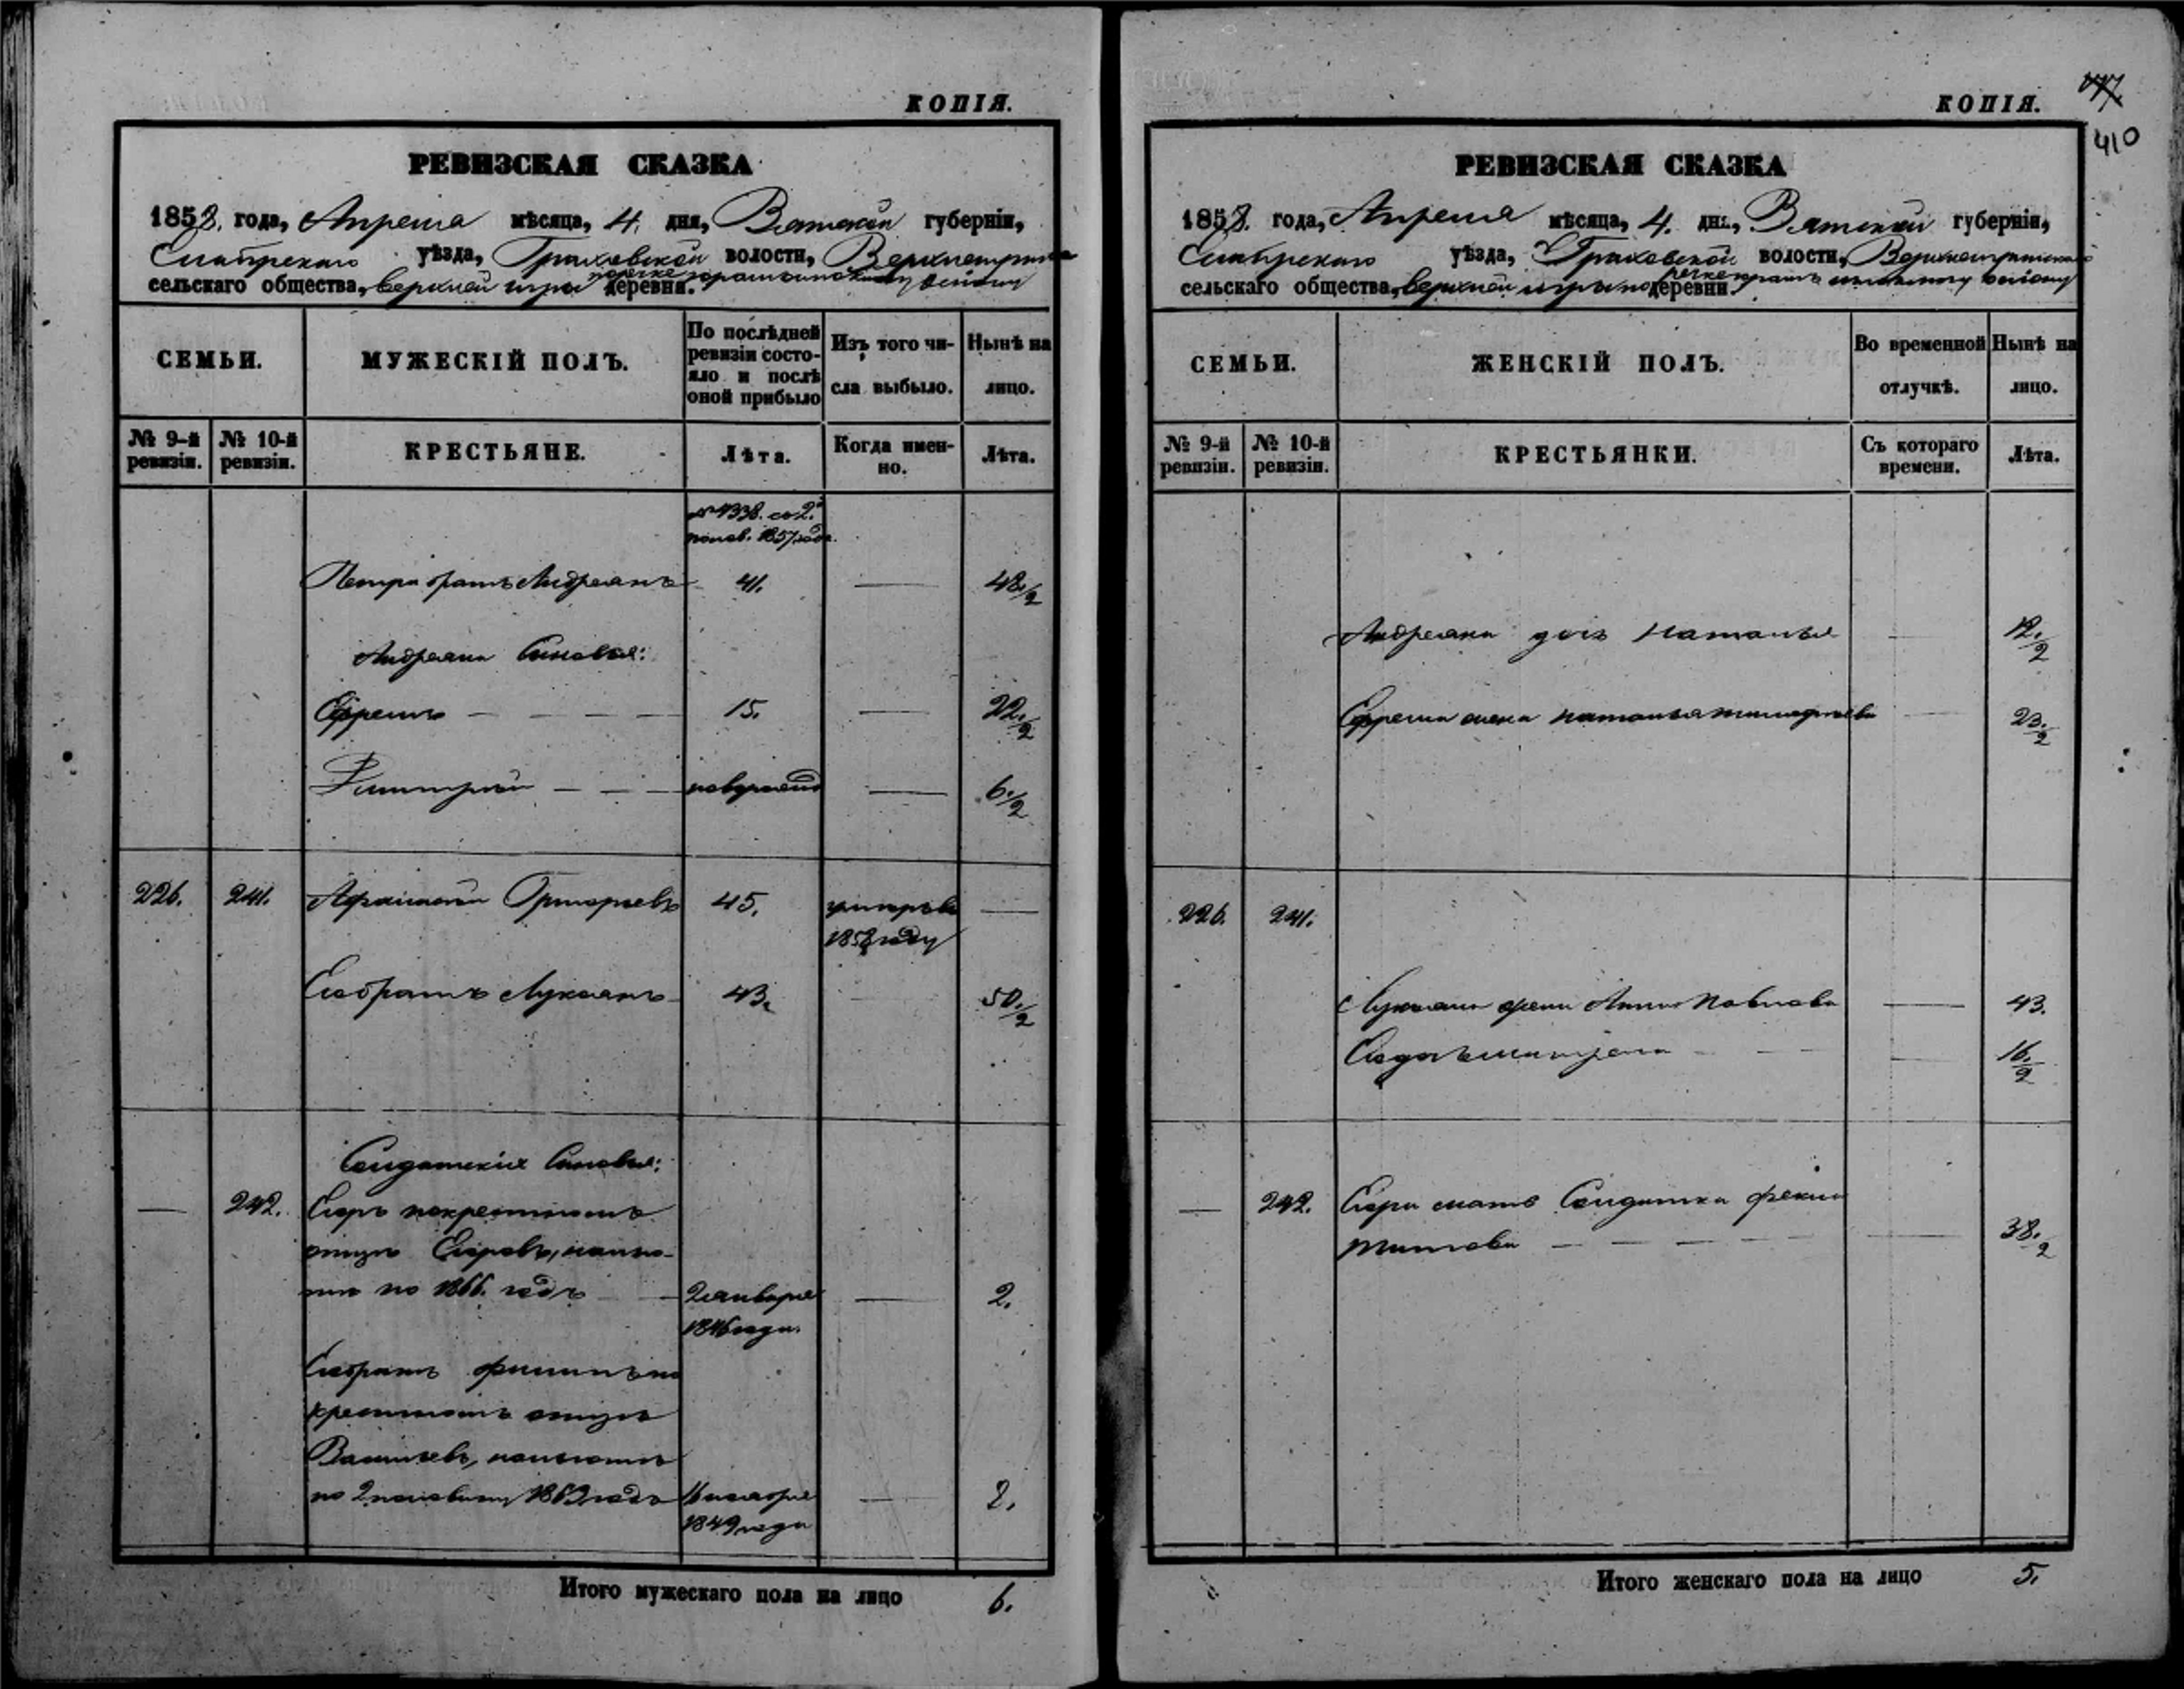 КОПІЯ.
РЕВИЗСКАЯ СКАЗКА
1858. года, Апреля мѣсяца, 4. дня, Вятской губерніи,
уѣзда, Граховской волости,
сельскаго общества, верхней игры деревни.
СЕМЬИ.
МУЖЕСКІЙ ПОЛЪ.
По послѣдней ревизіи состояло и послѣ оной прибыло
Изъ того числа выбыло.
Нынѣ на лицо.
№ 9-й ревизіи.
№ 10-й ревизіи.
КРЕСТЬЯНЕ.
Лѣта.
Когда именно.
Лѣта.
полов. 1857 года.
Петра братъ Андреянъ 41. — 48 1/2
Андреяна Сыновья:
Ефремъ — — — 15. — 22. 1/2
Дмитрей — — — новорожд — 6. 1/2
226. 241. Афанасей Григорьевъ 45. умеръ въ —
185 году
Его братъ Лукоянъ 43. 50. 1/2
Солдатскіе Сыновья:
— 242. Егоръ покрестному
отцу Егоровъ,
по 1866. годъ — 2 января — 2.
1846 года.
Его братъ Филипъ по
крестному отцу
Васильевъ,
по 2 половину 1869 года 1849 года — 2.
Итого мужескаго пола на лицо 6.
КОПІЯ.
410
РЕВИЗСКАЯ СКАЗКА
1858. года, Апреля мѣсяца, 4. дня, Вятской губерніи,
уѣзда, Граховской волости,
сельскаго общества, верхней игры деревни
СЕМЬИ.
ЖЕНСКІЙ ПОЛЪ.
Во временной отлучкѣ.
Нынѣ на лицо.
№ 9-й ревизіи.
№ 10-й ревизіи.
КРЕСТЬЯНКИ.
Съ котораго времени.
Лѣта.
Андреяна дочь Наталья — 12. 1/2
Ефрема жена Наталья — 23. 1/2
226. 241.
Лукояна жена Анна Павлова — 43.
Его дочь Матрена — — — 16. 1/2
— 242. Егора мать Солдатка Фекла
Титова — — — — — 38. 1/2
Итого женскаго пола на лицо 5.